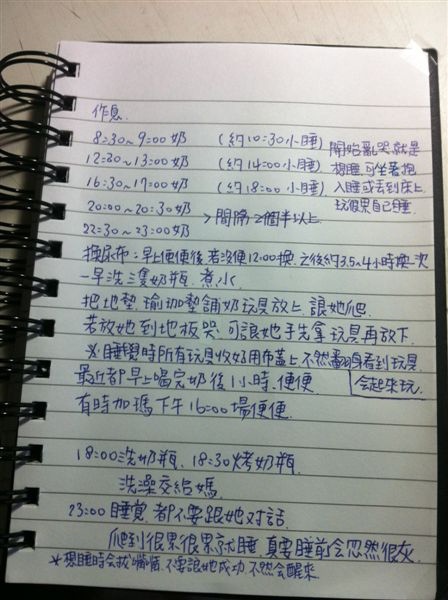 作息.
8:30~9:00奶 (約10:30小睡) 開始亂哭就是
12:30~13:00奶 (約14:00小睡) 想睡,可坐著抱
16:30~17:00奶 (約18:00小睡) 入睡或丟到床上
20:00~20:30奶 玩很累自己睡.
22:30~23:00奶 >間隔2個半以上
換尿布:早上便便後,若沒便12:00換,之後約3.5~4小時換一次
一早洗三隻奶瓶.煮水.
把地墊.瑜珈墊舖奶玩具放上.讓她爬.
若放她到地板哭,可讓她手先拿玩具再放下.
※睡覺時所有玩具收好用布蓋上.不然翻身看到玩具
會起來玩.
最近都早上喝完奶後1小時.便便
有時加碼下午16:00場便便.
18:00洗奶瓶.18:30烤奶瓶
洗澡交給媽.
23:00睡覺.都不要跟她對話.
爬到很累很累就睡.真要睡前會忽然很灰.
*想睡時会拔嘴嘴.不要讓她成功.不然会醒來.